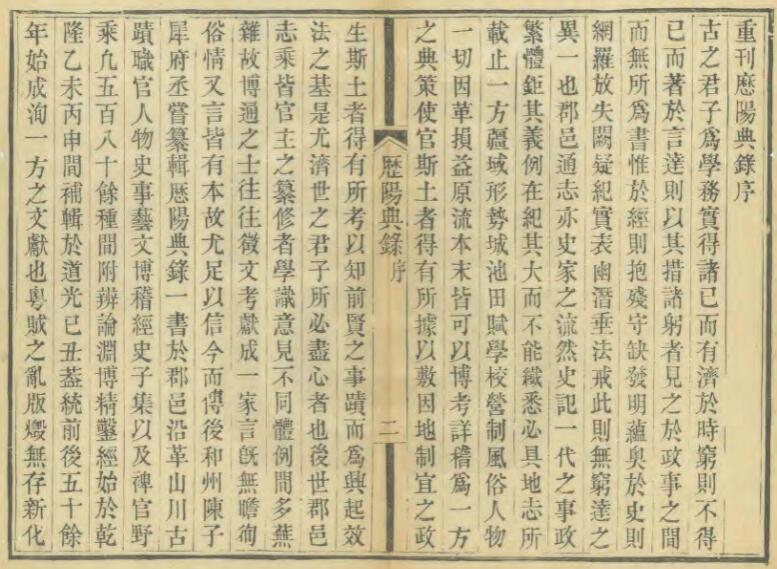 重刊歷陽典錄序
古之君子爲學務實得諸已而有濟於時窮則不得
已而著於言達則以其措諸躬者見之於政事之間
而無所爲書惟於經則抱殘守缺發明蘊奥於史則
網羅放失闕疑紀實表幽潛垂法戒此則無窮達之
異一也郡邑通志亦史家之流然史記一代之事政
繁體鉅其義例在紀其大而不能纎悉必具地志所
載止一方疆域形勢城池田賦學校營制風俗人物
一切因革損益原流本末皆可以博考詳稽爲一方
之典策使官斯土者得有所據以敷因地制宜之政
歷陽典錄 序
二
生斯土者得有所考以知前賢之事蹟而爲興起效
法之基是尤濟世之君子所必盡心者也後世郡邑
志乘皆官主之纂修者學識意見不同體例間多蕪
雜故博通之士往往徵文考獻成一家言旣無瞻徇
俗情又言皆有本故尤足以信今而傳後和州陳子
犀府丞嘗纂輯歷陽典錄一書於郡邑沿革山川古
蹟職官人物史事藝文博稽經史子集以及稗官野
乘凢五百八十餘種間附辨論淵博精鑿經始於乾
隆乙未丙申間補輯於道光己丑葢統前後五十餘
年始成洵一方之文獻也粵賊之亂版燬無存新化